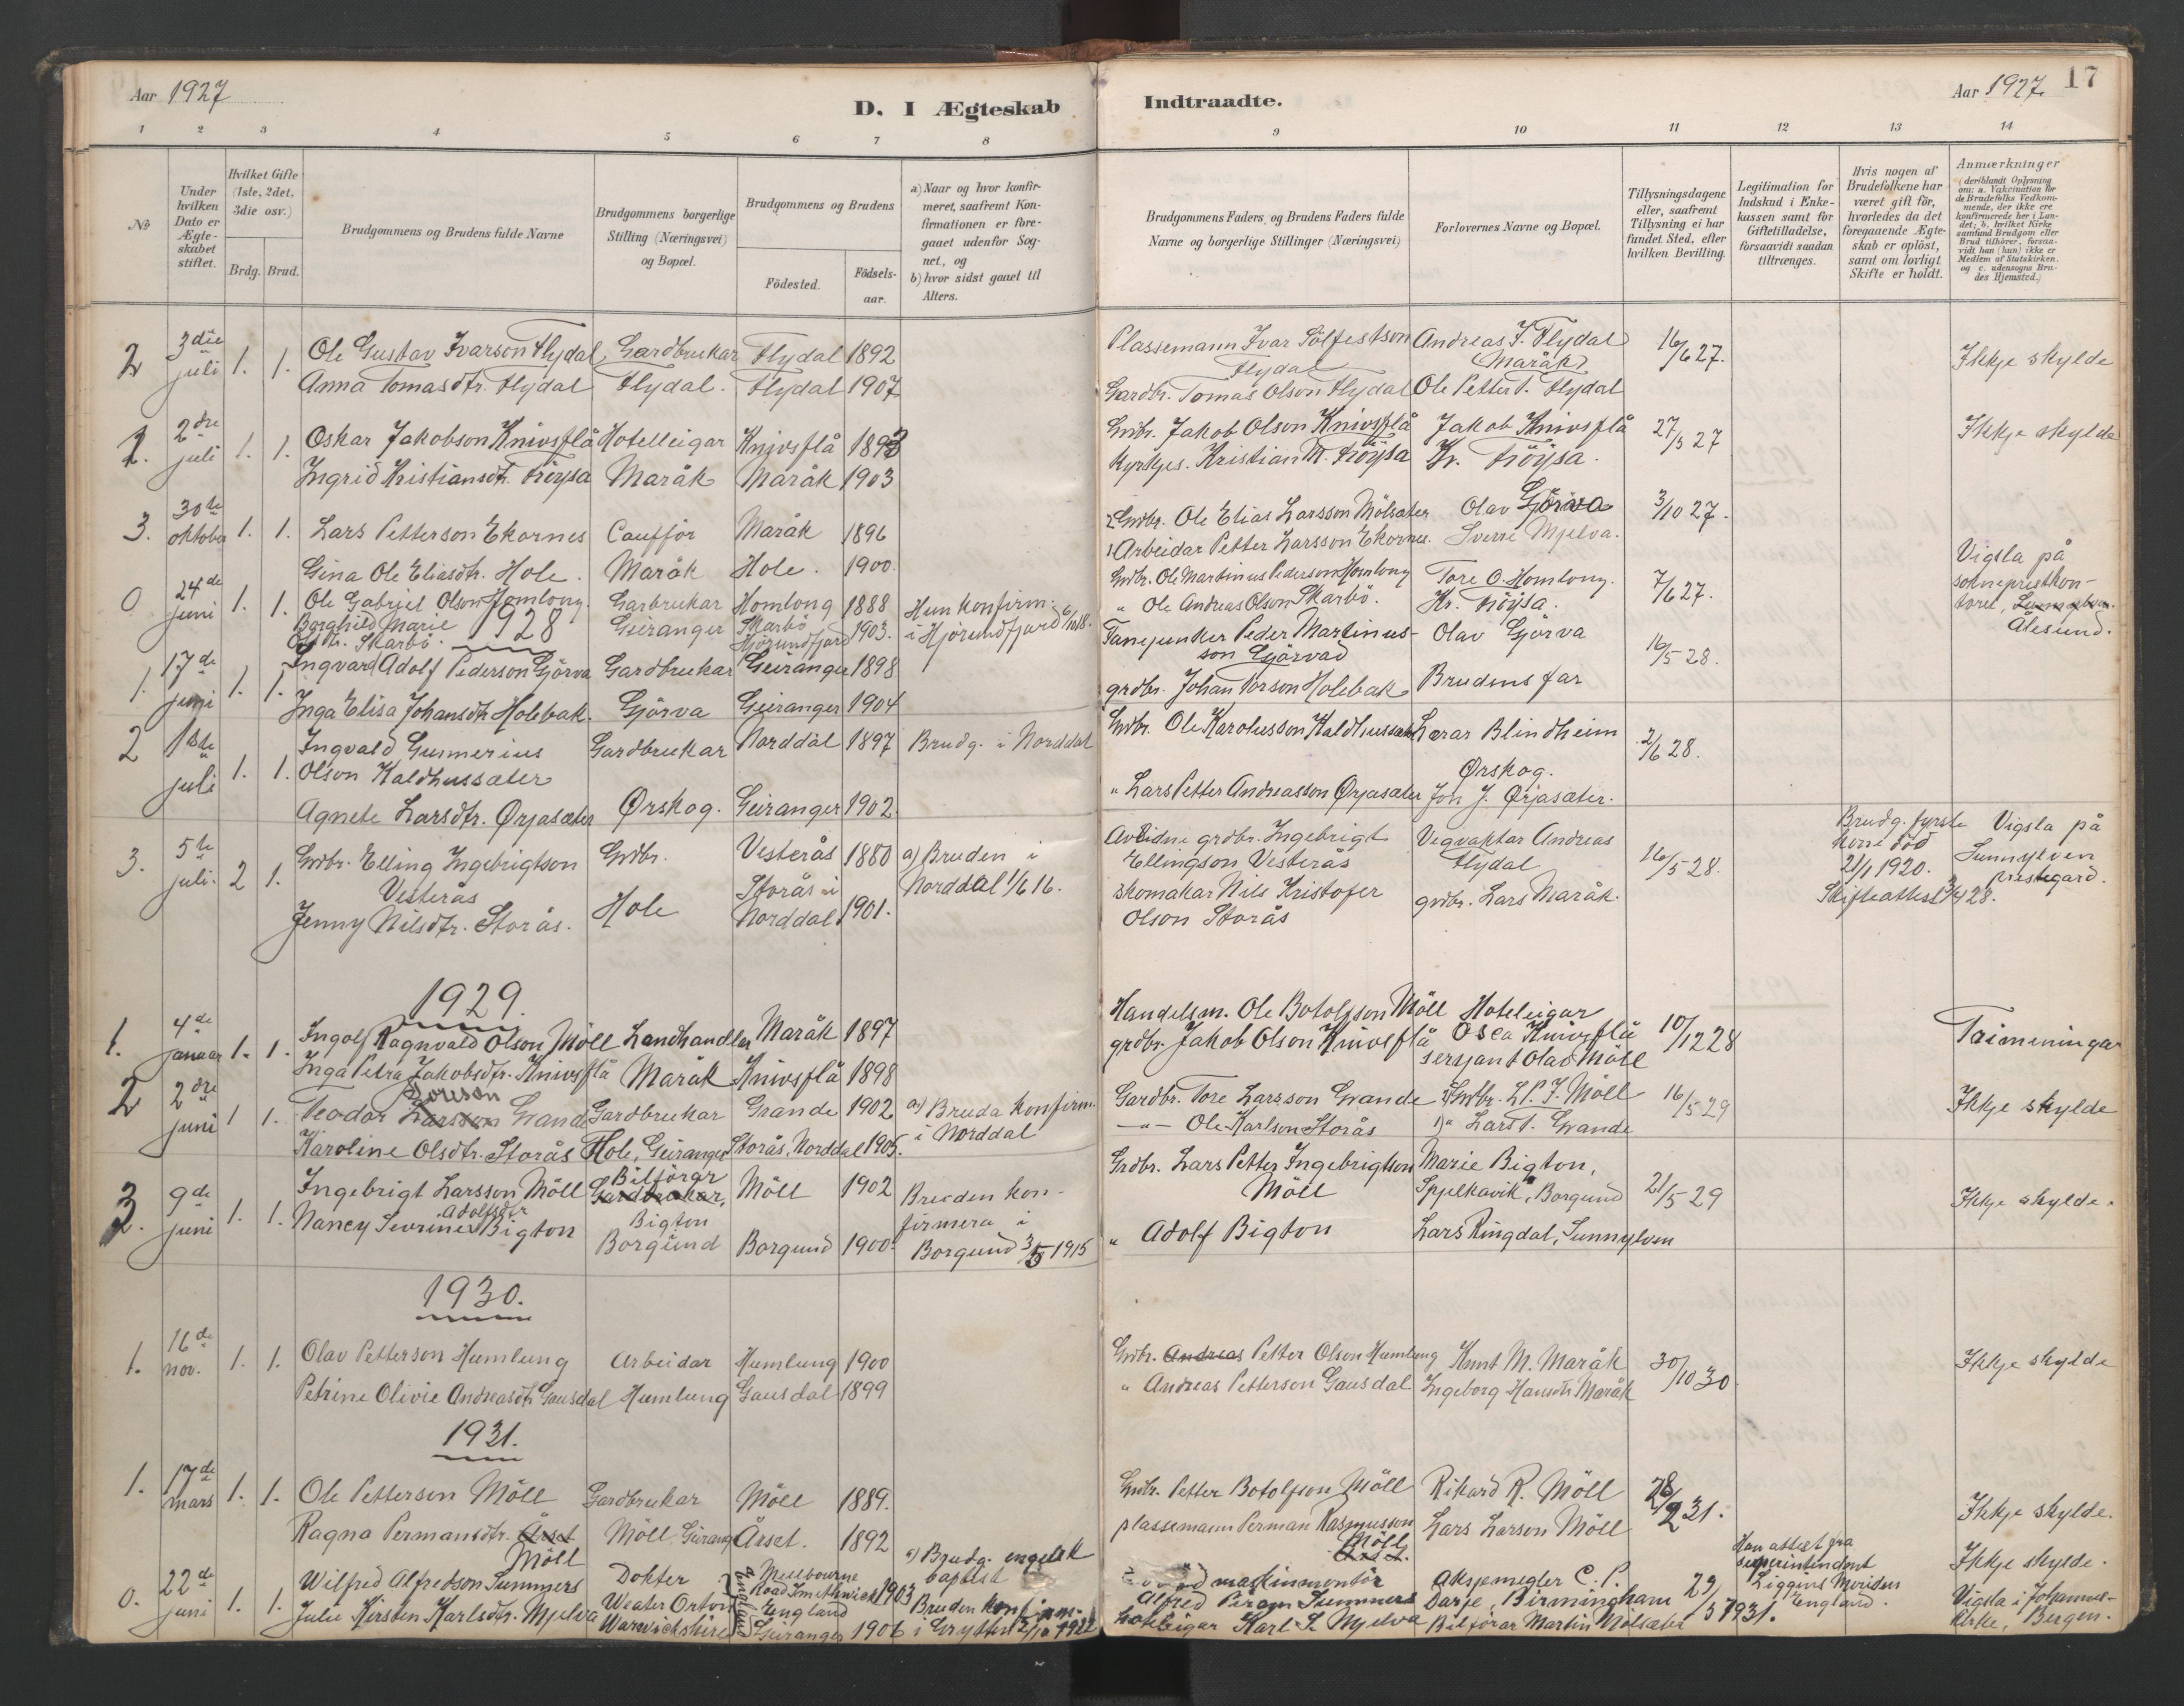 Aar 1927
D. I Ægteskab
1 2 3 4 5 6 7 8
No
Under hvilken Dato er Ægte-skabet stiftet.
Hvilket Gifte (1ste, 2det, 3die osv.)
Brdg. Brud.
Brudgommens og Brudens fulde Navne
Brudgommens borgerlige Stilling (Næringsvei) og Bopæl.
Brudgommens og Brudens
Födested. Födsels-aar.
a) Naar og hvor konfir-meret, saafremt Kon-firmationen er fore-gaaet udenfor Sog-net, og
b) hvor sidst gaaet til Alters.
2 3die juli 1. 1. Ole Gustav Ivarson Flydal, Gardbrukar Flydal 1892
Anna Tomasdtr. Flydal Flydal. Flydal 1907
1. 2dre juli 1. 1. Oskar Jakobson Knivsflå Hotelleigar Knivsflå 1893
Ingrid Kristiansdtr. Fröysa Maråk Maråk 1903
3. 30te oktober 1. 1. Lars Petterson Ekornes Caufför Maråk 1896
Gina Ole Eliasdtr. Hole. Maråk Hole. 1900.
0 24de juni 1. 1. Ole Gabriel Olson Homlong. Garbrukar Homlong 1888 Hun konfirm.
Borghild Marie Geiranger Skarbö 1903. i Hjörundfjord 6/10 18.
Olsdtr. Skarbö. Hjörundfjord
1928
1. 17de juni 1. 1. Ingvard Adolf Pederson Gjörva Gardbrukar Geiranger 1898
Inga Elisa Johansdtr Holebak. Gjörva Geiranger 1904
2 1ste juli 1. 1. Ingvald Gunnerius Gardbrukar Norddal 1897 Brudg. i Norddal
Olson Kaldhussæter
Agnete Larsdtr. Ørjasæter Ørskog. Geiranger 1902.
3. 5te juli. 2 1. Grdbr. Elling Ingebrigtson Grdbr. Vesterås 1880 a) Bruden i
Vesterås Storås i Norddal 1/6 16.
Jenny Nilsdtr. Storås. Hole Norddal 1901.
1929.
1. 4de januar 1. 1. Ingolf Ragnvald Olson Möll Landhandler Maråk 1897
Inga Petra Jakobsdtr. Knivsflå Maråk Knivsflå 1898
2 2dre juni 1 1. Teodor Larsson Toreson Grande Gardbrukar Grande 1902 a) Bruda konfirm.
Karoline Olsdtr. Storås Hole, Geiranger Storås, Norddal 1905. i Norddal
3. 9de juni 1. 1. Ingebrigt Larsson Möll Gardbrukar, Bilförar Möll 1902 Bruden kon-
Nancy Sevrine Adolfsdtr Bigton Bigton firmera i
Borgund Borgund 1900 Borgund 3/5 1915
1930.
1. 16de nov. 1. 1. Olav Petterson Humlung Arbeidar Humlung 1900
Petrine Olivie Andreasdtr Gausdal Humlung Gausdal 1899
1931.
1. 17de mars 1. 1. Ole Petterson Möll Gardbrukar Möll 1889.
Ragna Permansdtr. Årset Möll, Geirang Årset. 1892
Möll
0. 22de juni 1. 1. Wilfred Alfredson Summers Dokter Melbourne a) Brudg. engelsk
Road Smethwick 1903 baptist
Julie Kirsten Karlsdtr. Mjelva Water Orton England Bruden konfirm.
Warwickshire England Geiranger 1906 i Grytten 2/10 1922
Indtraadte.
Aar 1927. 17
9 10 11 12 13 14
Brudgommens Faders og Brudens Faders fulde Navne og borgerlige Stillinger (Næringsvei)
Forlovernes Navne og Bopæl.
Tillysningsdagene eller, saafremt Tillysning ei har fundet Sted, efter hvilken Bevilling.
Legitimation for Indskud i Enke-kassen samt for Giftetilladelse, forsaavidt saadan tiltrænges.
Hvis nogen af Brudefolkene har været gift för, hvorledes da det foregaaende Ægte-skab er oplöst, samt om lovligt Skifte er holdt.
Anmærkninger (deriblandt Oplysning om: a. Vakcination for de Brudefolks Vedkom-mende, der ikke ere konfirmerede her i Lan-det; b. hvilket Kirke samfund Brudgom eller Brud tilhörer, forsaa-vidt han (hun) ikke er Medlem af Statskirken. og c. udensogns Bru-des Hjemsted.)
Plassemann Ivar Sölfestson Andreas I. Flydal 16/6 27. Ikkje skylde
Flydal Maråk
Gardbr. Tomas Olson Flydal Ole Petter T. Flydal
Grdbr. Jakob Olson Knivsflå Jakob Knivsflå 27/5 27 Ikkje skylde
Kyrkjes. Kristian M. Fröysa Kr. Fröysa.
2 Grdbr. Ole Elias Larsson Mölsæter Olav Gjörva 3/10 27.
1 Arbeidar Petter Larsson Ekornes. Sverre Mjelva.
Grdbr. Ole Martinus Pederson Homlong Tore O. Homlong. 7/6 27. Vigsla på
" Ole Andreas Olson Skarbö. Kr. Fröysa. sokneprestkon-
toret, Sunnylven.
Ålesund.
Fanejunker Peder Martinus- Olav Gjörva 16/5 28.
son Gjörvad
grdbr. Johan Torson Holebak Brudens far
Grdbr. Ole Karolusson Kaldhussæter Lærar Blindheim 2/6 28.
Ørskog.
" Lars Petter Andreasson Ørjasæter Jon J. Ørjasæter.
Avlidne grdbr. Ingebrigt Vegvaktar Andreas 16/5 28. Brudg. fyrste Vigsla på
Ellingson Vesterås Flydal kone död Sunnylven
skomakar Nils Kristofer grdbr. Lars Maråk. 21/1 1920. prestegard.
Olson Storås Skifteattest 3/4 28.
Handelsm. Ole Botolfson Möll Hoteleigar 10/12 28 Trimeningar
grdbr. Jakob Olson Knivsflå Osca Knivsflå
sersjant Olav Möll
Gardbr. Tore Larsson Grande 2) Grdbr. L. P. I. Möll 16/5 29 Ikkje skylde
—"— Ole Karlson Storås 1) " Lars T. Grande
Grdbr. Lars Petter Ingebrigtson Marie Bigton, 21/5 29 Ikkje skylde.
Möll Spjelkavik, Borgund
" Adolf Bigton Lars Ringdal, Sunnylven
Grdbr. Andreas Petter Olson Humlung Knut M. Maråk 30/10 30 Ikkje skylde
" Andreas Petterson Gausdal Ingeborg Hansdtr Maråk
Grdbr. Petter Botolfson Möll Rikard R. Möll 28/2 31. Ikkje skylde.
plassemann Perman Rasmusson Lars Larson Möll
Möll
Årset.
maskinmontör Aksjemegler C. P. 29/5 1931. Han attest fra Ikkje skylde.
Alfred Summers Darje, Birmingham superintendent Vigsla i Johannes-
hoteleigar Karl S. Mjelva Bilförar Martin Mölsæter England. kirke, Bergen.